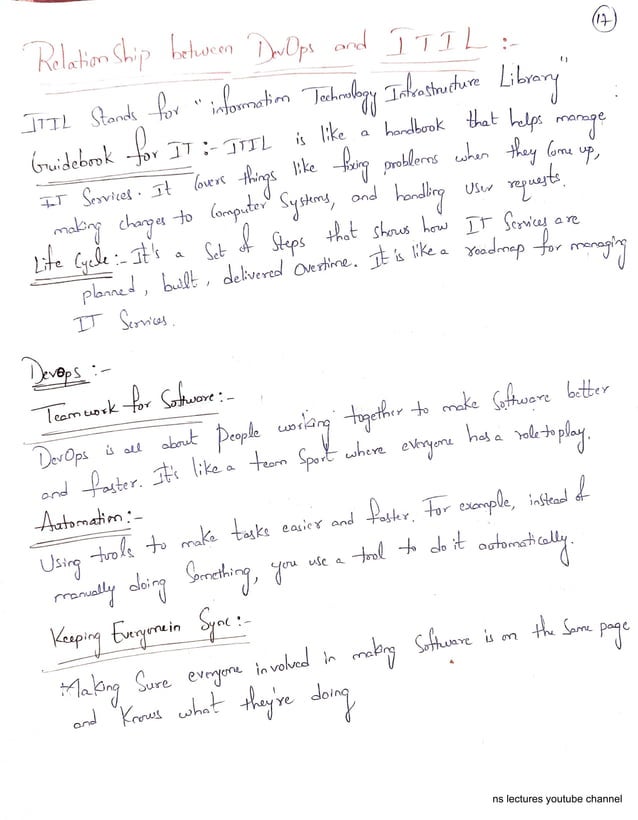 17
Relationship between DevOps and ITIL :-
ITIL Stands for "information Technology Infrastructure Library"
Guidebook for IT :- ITIL is like a handbook that helps manage
IT Services. It Covers things like fixing problems when they Come up,
making changes to Computer Systems, and handling User requests.
Life Cycle :- It's a Set of Steps that shows how IT Services are
planned, built, delivered Overtime. It is like a roadmap for managing
IT Services.
DevOps :-
Teamwork for Software :-
DevOps is all about People working together to make Software better
and faster. It's like a team Sport where everyone has a role to play.
Automation :-
Using tools to make tasks easier and faster. For example, instead of
manually doing Something, you use a tool to do it automatically.
Keeping Everyone in Sync :-
Making Sure everyone involved in making Software is on the Same page
and Knows what they're doing
ns lectures youtube channel